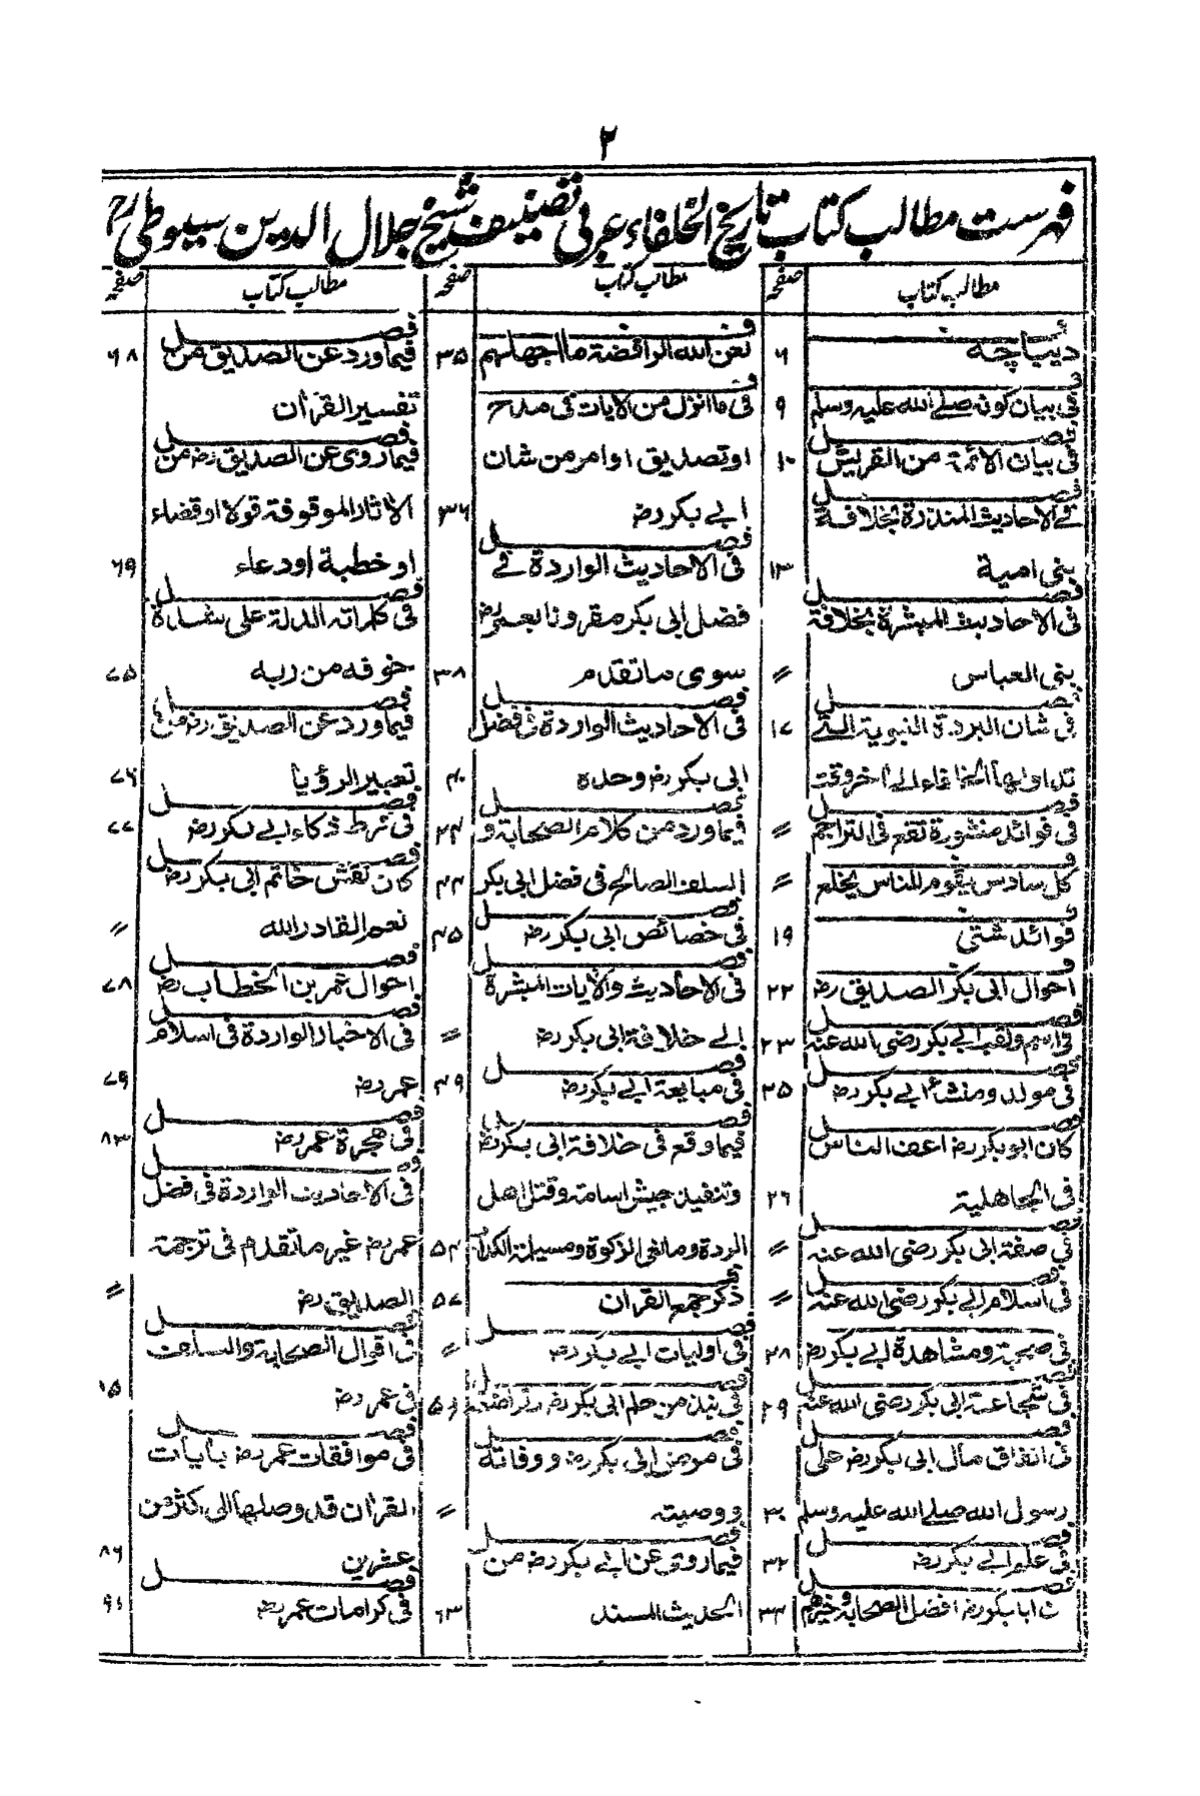 ٢
فهرست مطالب کتاب تاریخ الخلفاء عربی تصنیف شیخ جلال الدین سیوطی رح
مطالب کتاب صفحہ
دیباچه ٦
فی بیان کونه صلے الله علیہ وسلم ٩
فصل
فی بیان الائمة من القریش ١٠
فصل
فے الاحادیث المنذرة بخلافة
بنی امیة ١٣
فصل
فی الاحادیث المبشرة بخلافة
بنی العباس //
فصل
فی شان البردة النبویة التے ١٧
تداولها الخلفاء الے اخر وقت
فصل
فی فوائد منثورة تقع فی التراجم //
کل سادس یقوم للناس یخلع //
فوائد شتی ١٩
احوال ابی بکر الصدیق رض ٢٢
فصل
فی اسم ولقب ابے بکر رضی الله عنه ٢٣
فصل
فی مولد ومنشاء ابے بکر رض ٢٥
فصل
کان ابو بکر رض اعف الناس
فی الجاهلیة ٢٦
فصل
فی صفة ابی بکر رضی الله عنه //
فصل
فی اسلام ابے بکر رضی الله عنه //
فی صحبة ومشاهدة ابے بکر رض ٢٨
فصل
فی شجاعة ابی بکر رضی الله عنه ٢٩
فصل
فی انفاق مال ابی بکر رض علی
رسول الله صلے الله علیه وسلم ٣٠
فصل
فی علم ابے بکر رض ٣٢
فصل
ن ابا بکر رض افضل الصحابة وخیرهم ٣٣
مطالب کتاب صفحہ
لعن الله الرافضة ما اجهلهم ٣٥
فی ما انزل من الایات فی مدح
او تصدیق او امر من شان
ابے بکر رض ٣٦
فصل
فی الاحادیث الواردة فے
فضل ابی بکر مقرونا بعمر رض
سوی ما تقدم ٣٨
فصل
فی الاحادیث الواردة فی فضل
ابی بکر رض وحده ٤٠
فصل
فیما ورد من کلام الصحابة و
السلف الصالح فی فضل ابی بکر ٤٤
فصل
فی خصائص ابی بکر رض ٤٥
فصل
فی الاحادیث والایات المبشرة
الے خلافة ابی بکر رض //
فصل
فی مبایعة ابے بکر رض ٤٩
فصل
فیما وقع فی خلافة ابی بکر رض
وتنفیذ جیش اسامة وقتل اهل
الردة ومانعی الزکوة ومسیلمة الکذاب ٥٤
ذکر جمع القران ٥٧
فصل
فی اولیات ابے بکر رض //
فصل
فی نبذ من حلم ابی بکر رض وتواضعه ٥٩
فصل
فی مرض ابی بکر رض ووفاته
ووصیته //
فصل
فیما روی عن ابے بکر رض من
الحدیث المسند ٦٣
مطالب کتاب صفحہ
فصل
فیما ورد عن الصدیق من ٦٨
تفسیر القران
فصل
فیما روی عن الصدیق رض من
الاثار الموقوفة قولا او قضاء
او خطبة او دعاء ٦٩
فصل
فی کلماته الدلة علی شدة
خوفه من ربه ٧٥
فصل
فیما ورد عن الصدیق رض من
تعبیر الرؤیا ٧٦
فصل
فی فرط ذکاء ابے بکر رض ٧٧
فصل
کان نقش خاتم ابی بکر رض
نعم القادر الله //
فصل
احوال عمر بن الخطاب رض ٧٨
فصل
فی الاخبار الواردة فی اسلام
عمر رض ٧٩
فصل
فی هجرة عمر رض ٨٣
فصل
فی الاحادیث الواردة فی فضل
عمر رض غیر ما تقدم فی ترجمة
الصدیق رض //
فصل
فی اقوال الصحابة والسلف
فی عمر رض ١٥
فصل
فی موافقات عمر رض بایات
القران قد وصلها الی اکثر من
عشرین ٨٦
فصل
فی کرامات عمر رض